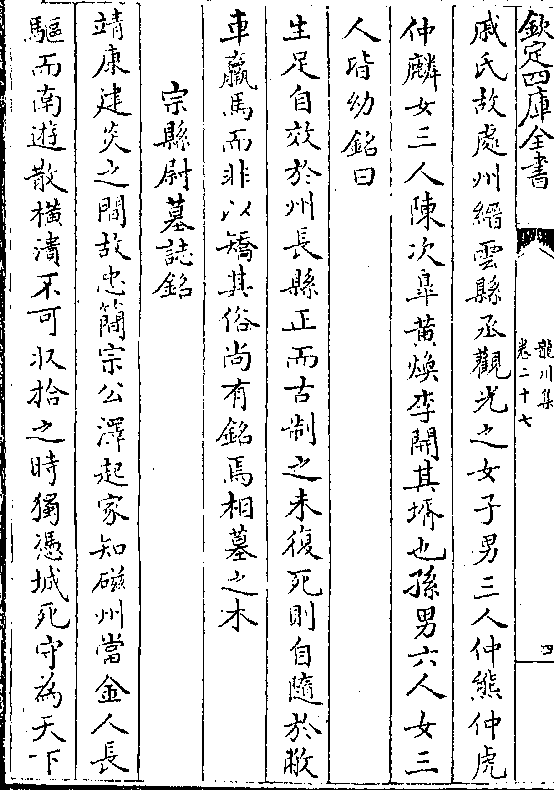 欽定四庫全書
龍川集
卷二十七
四
戚氏故處州縉雲縣丞觀光之女子男三人仲熊仲虎
仲麟女三人陳次臯黄煥李開其壻也孫男六人女三
人皆幼銘曰
生足自效於州長縣正而古制之未復死則自隨於敝
車羸馬而非以矯其俗尚有銘焉相墓之木
宗縣尉墓誌銘
靖康建炎之間故忠簡宗公澤起家知磁州當金人長
驅而南逰散橫潰不可收拾之時獨憑城死守為天下